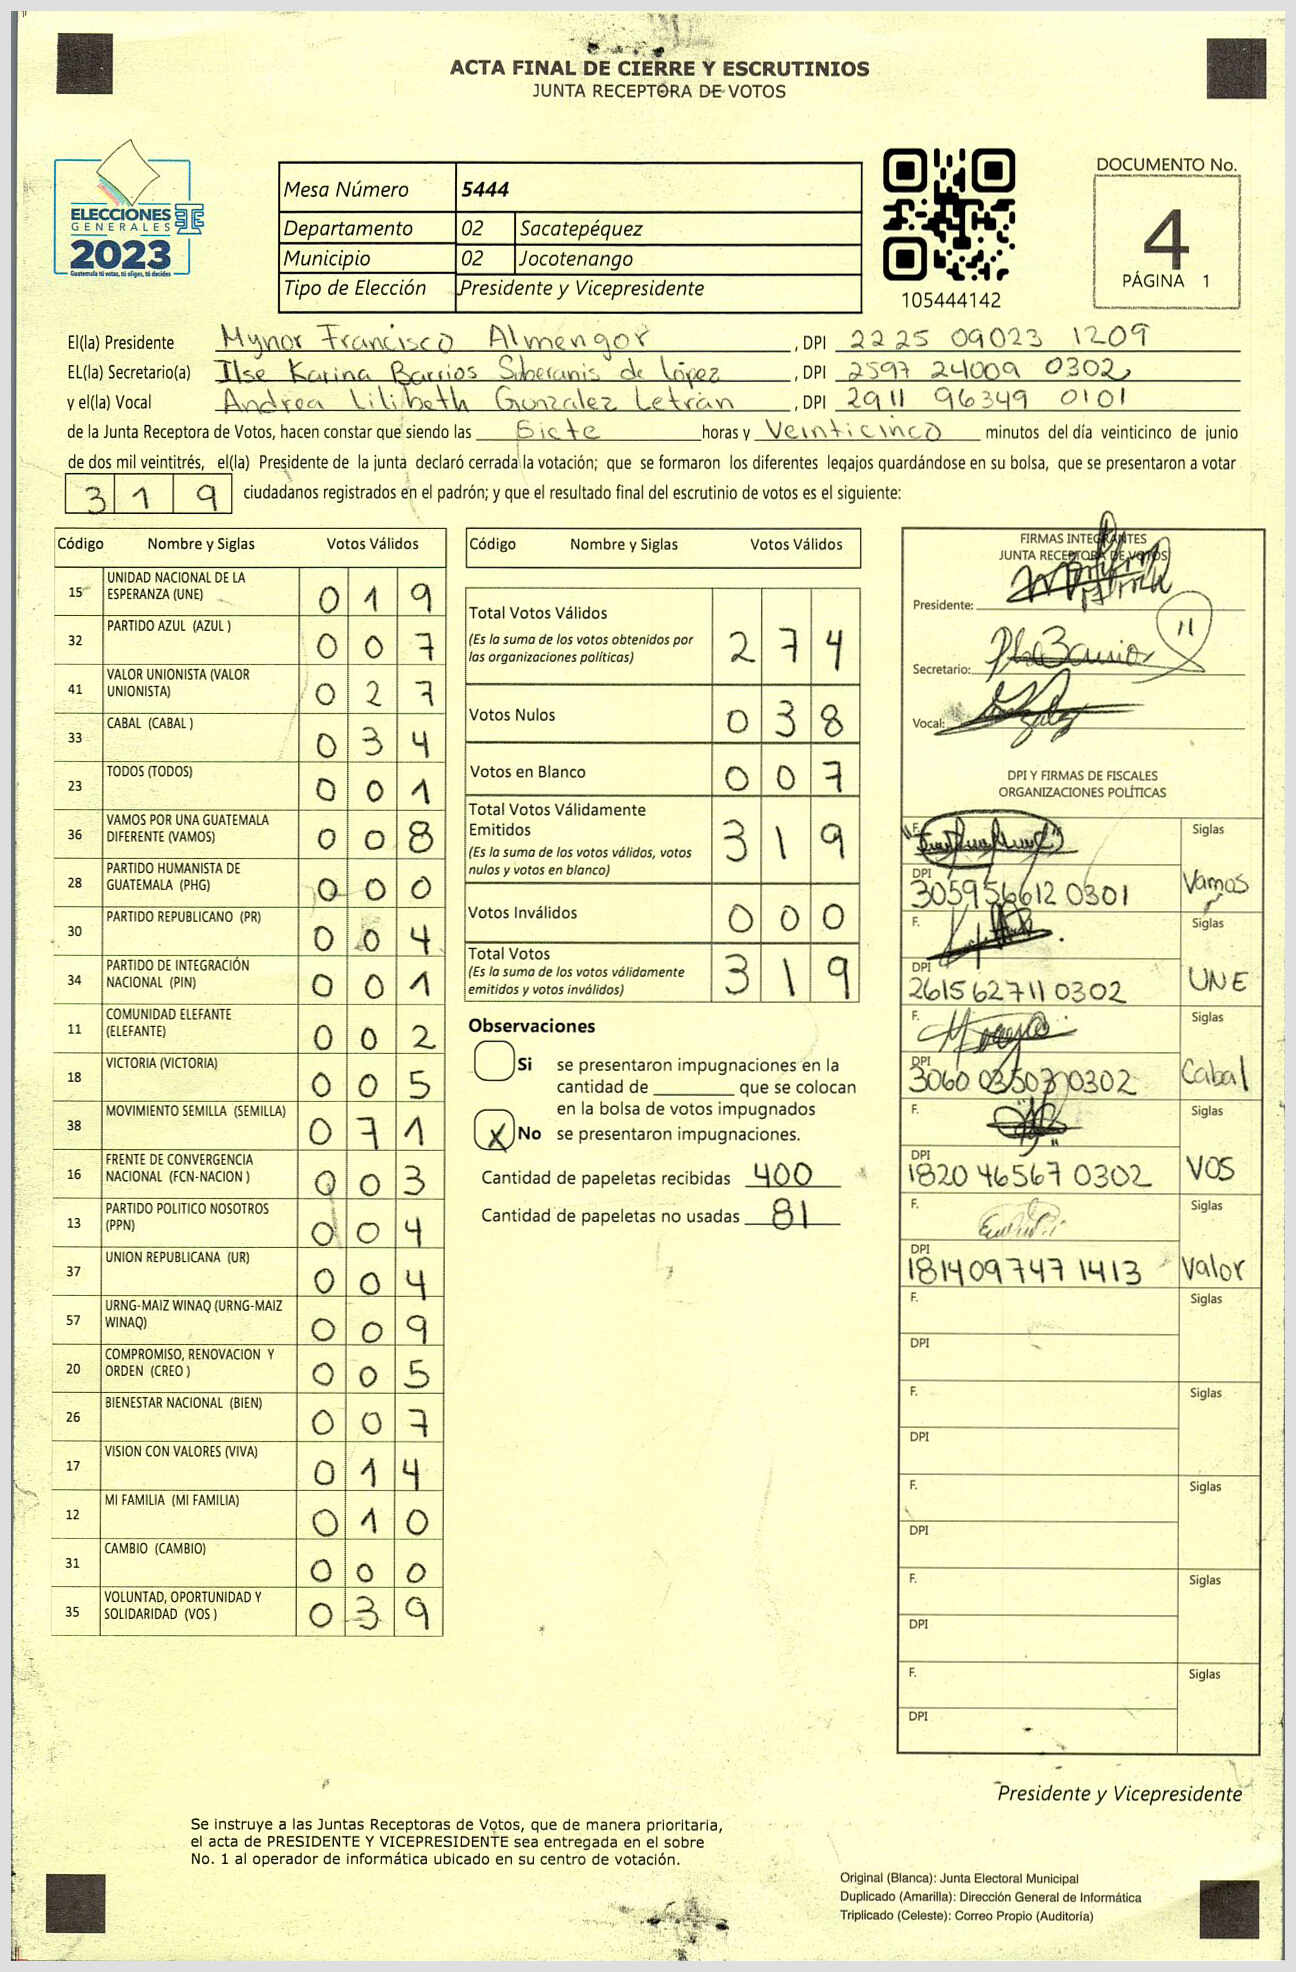 ACTA FINAL DE CIERRE Y ESCRUTINIOS
JUNTA RECEPTORA DE VOTOS
ELECCIONES
GENERALES
2023
Guatemala tú votas, tú eliges, tú decides
Mesa Número 5444
Departamento 02 Sacatepéquez
Municipio 02 Jocotenango
Tipo de Elección Presidente y Vicepresidente
105444142
DOCUMENTO No.
4
PÁGINA 1
El(la) Presidente Mynor Francisco Almengor , DPI 2225 09023 1209
EL(la) Secretario(a) Ilse Karina Barrios Suberanis de López , DPI 2597 24009 0302
y el(la) Vocal Andrea Lilibeth Gonzalez Letrán , DPI 2911 96349 0101
de la Junta Receptora de Votos, hacen constar que siendo las Siete horas y Veinticinco minutos del día veinticinco de junio
de dos mil veintitrés, el(la) Presidente de la junta declaró cerrada la votación; que se formaron los diferentes legajos guardándose en su bolsa, que se presentaron a votar
319 ciudadanos registrados en el padrón; y que el resultado final del escrutinio de votos es el siguiente:
Código Nombre y Siglas Votos Válidos
15 UNIDAD NACIONAL DE LA ESPERANZA (UNE) 019
32 PARTIDO AZUL (AZUL ) 007
41 VALOR UNIONISTA (VALOR UNIONISTA) 027
33 CABAL (CABAL ) 034
23 TODOS (TODOS) 001
36 VAMOS POR UNA GUATEMALA DIFERENTE (VAMOS) 008
28 PARTIDO HUMANISTA DE GUATEMALA (PHG) 000
30 PARTIDO REPUBLICANO (PR) 004
34 PARTIDO DE INTEGRACIÓN NACIONAL (PIN) 001
11 COMUNIDAD ELEFANTE (ELEFANTE) 002
18 VICTORIA (VICTORIA) 005
38 MOVIMIENTO SEMILLA (SEMILLA) 071
16 FRENTE DE CONVERGENCIA NACIONAL (FCN-NACION ) 003
13 PARTIDO POLITICO NOSOTROS (PPN) 004
37 UNION REPUBLICANA (UR) 004
57 URNG-MAIZ WINAQ (URNG-MAIZ WINAQ) 009
20 COMPROMISO, RENOVACION Y ORDEN (CREO ) 005
26 BIENESTAR NACIONAL (BIEN) 007
17 VISION CON VALORES (VIVA) 014
12 MI FAMILIA (MI FAMILIA) 010
31 CAMBIO (CAMBIO) 000
35 VOLUNTAD, OPORTUNIDAD Y SOLIDARIDAD (VOS ) 039
Código Nombre y Siglas Votos Válidos
Total Votos Válidos 274
(Es la suma de los votos obtenidos por
las organizaciones políticas)
Votos Nulos 038
Votos en Blanco 007
Total Votos Válidamente
Emitidos 319
(Es la suma de los votos válidos, votos
nulos y votos en blanco)
Votos Inválidos 000
Total Votos 319
(Es la suma de los votos válidamente
emitidos y votos inválidos)
Observaciones
Si se presentaron impugnaciones en la
cantidad de ________ que se colocan
en la bolsa de votos impugnados
X No se presentaron impugnaciones.
Cantidad de papeletas recibidas 400
Cantidad de papeletas no usadas 81
FIRMAS INTEGRANTES
JUNTA RECEPTORA DE VOTOS
Presidente:
Secretario:
Vocal:
DPI Y FIRMAS DE FISCALES
ORGANIZACIONES POLÍTICAS
F. Siglas
DPI 305956612 0301 Vamos
F. Siglas
DPI 2615 62711 0302 UNE
F. Siglas
DPI 3060 03507 0302 Cabal
F. Siglas
DPI 1820 46567 0302 VOS
F. Siglas
DPI 181409747 1413 Valor
F. Siglas
DPI
F. Siglas
DPI
F. Siglas
DPI
F. Siglas
DPI
F. Siglas
DPI
Presidente y Vicepresidente
Se instruye a las Juntas Receptoras de Votos, que de manera prioritaria,
el acta de PRESIDENTE Y VICEPRESIDENTE sea entregada en el sobre
No. 1 al operador de informática ubicado en su centro de votación.
Original (Blanca): Junta Electoral Municipal
Duplicado (Amarilla): Dirección General de Informática
Triplicado (Celeste): Correo Propio (Auditoría)